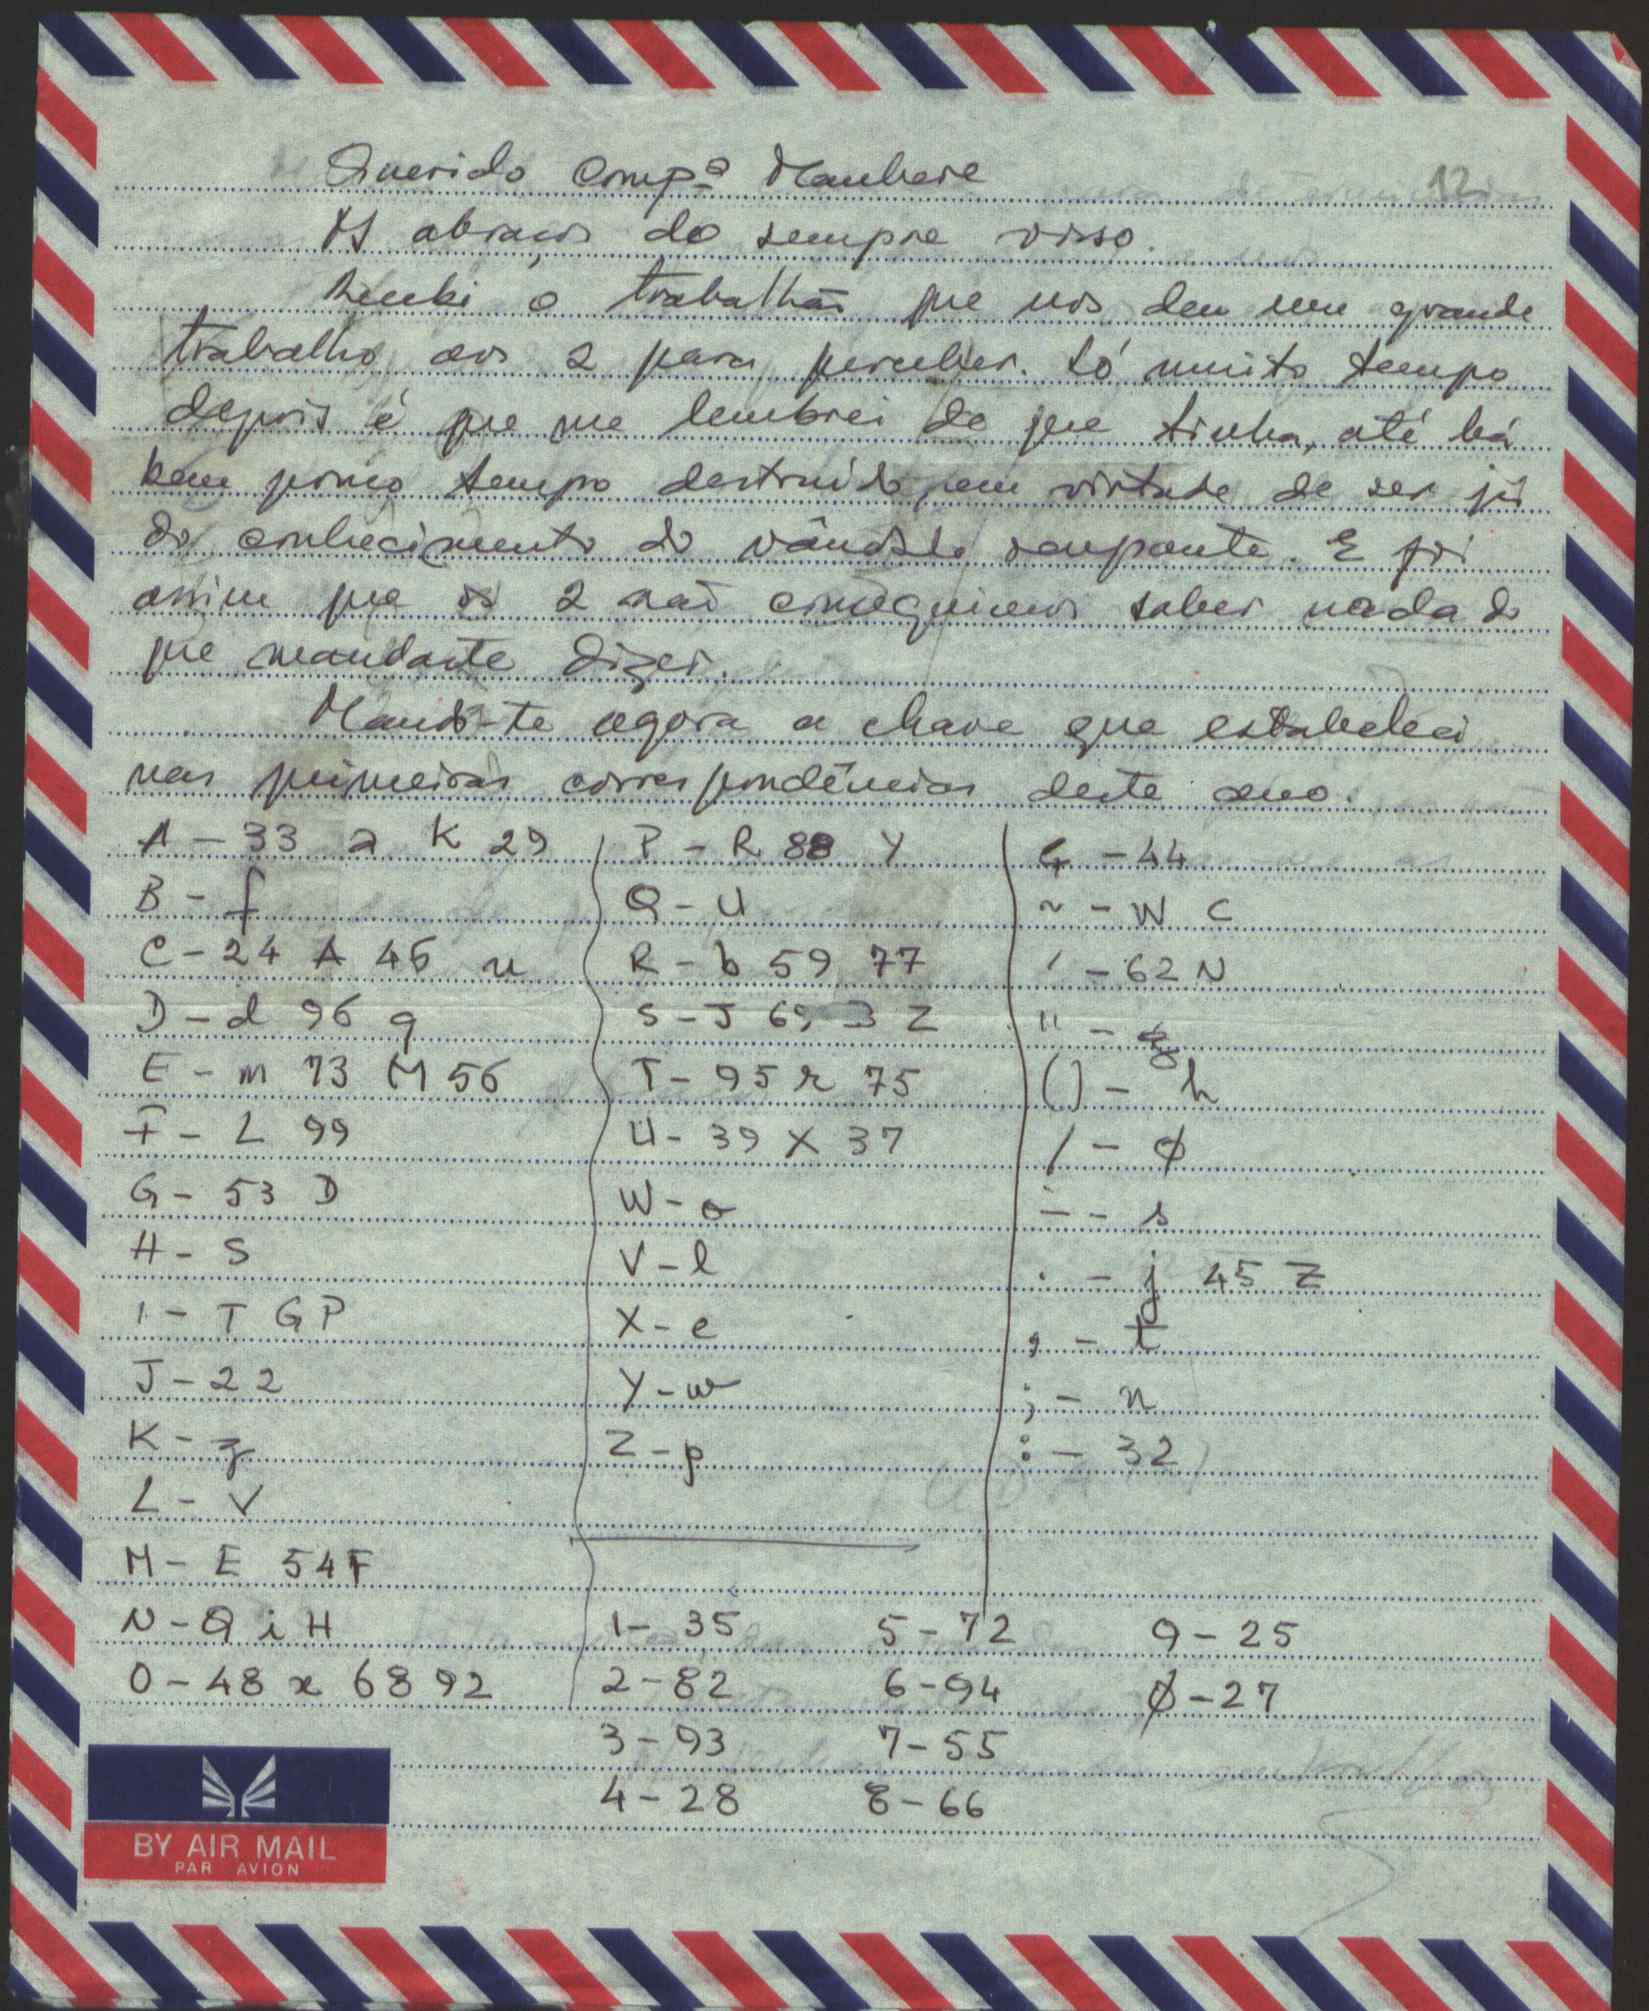 Querido Compº Maubere
12
Os abraços do sempre vosso.
Recebi o trabalhão que nos deu um grande
trabalho aos 2 para perceber. Só muito tempo
depois é que me lembrei do que tinha, até há
bem pouco tempo destruído, em virtude de ser já
do conhecimento do vândalo ocupante. E foi
assim que os 2 não conseguimos saber nada do
que mandaste dizer.
Mando-te agora a chave que estabeleci
nas primeiras correspondências deste ano.
A - 33 a K 29
B - f
C - 24 A 46 u
D - d 96 q
E - m 73 M 56
F - L 99
G - 53 D
H - S
I - T G P
J - 22
K - z
L - V
M - E 54 F
N - Q i H
O - 48 x 68 92
P - R 88 Y
Q - U
R - b 59 77
S - J 69 3 Z
T - 95 r 75
U - 39 X 37
W - o
V - l
X - e
Y - w
Z - p
Ç - 44
~ - W C
´ - 62 N
" -
() - h
/ - ø
- - s
. - j 45 Z
, - t
; - n
: - 32
1 - 35 5 - 72 9 - 25
2 - 82 6 - 94 ø - 27
3 - 93 7 - 55
4 - 28 8 - 66
BY AIR MAIL
PAR AVION